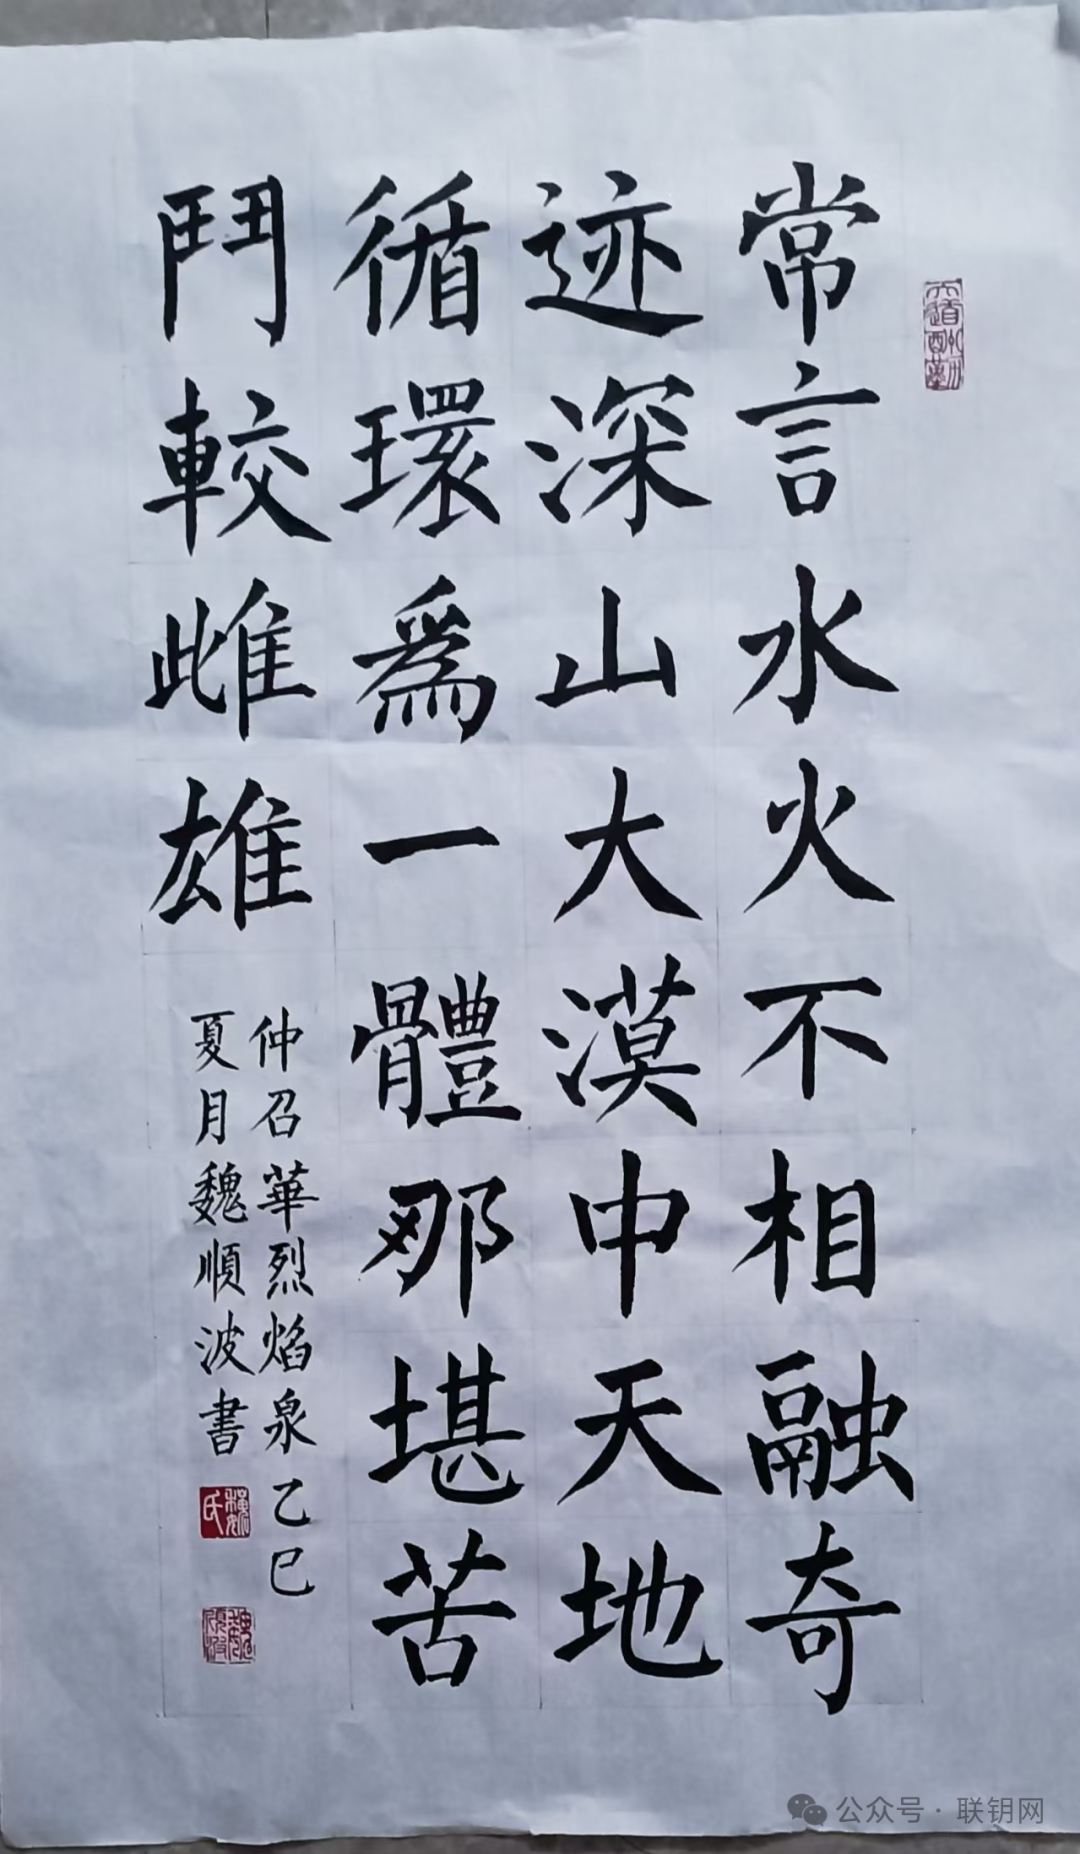 常言水火不相融奇
迹深山大漠中天地
循環為一體那堪苦
鬥較雌雄
仲召華烈焰泉乙巳
夏月魏順波書
魏氏
魏順波
公众号·联钥网